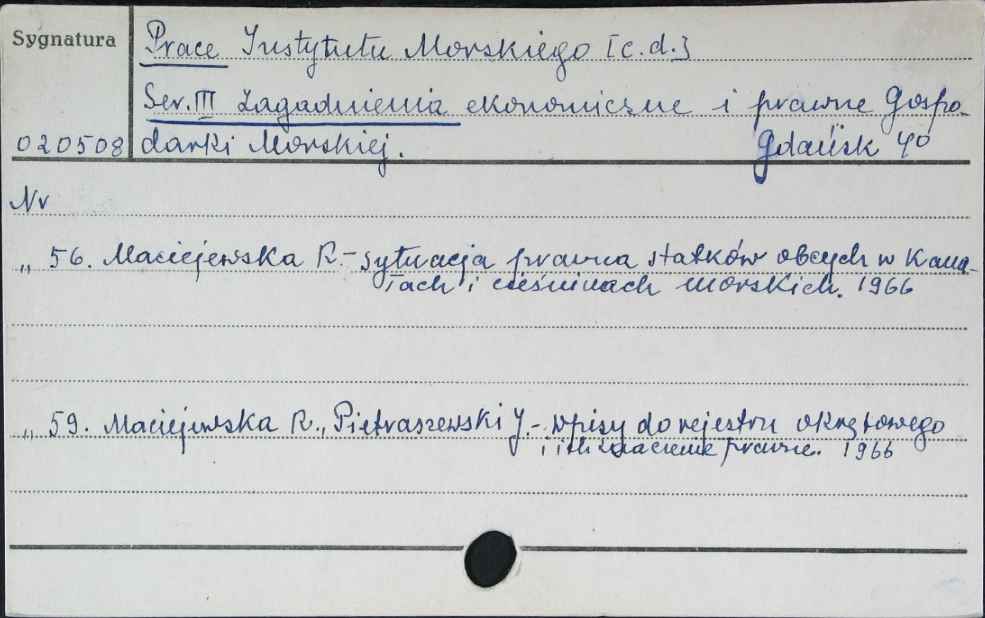 Sygnatura
Prace Instytutu Morskiego [c.d.]
Ser. III Zagadnienia ekonomiczne i prawne Gospo-
020508 darki Morskiej. Gdańsk 40
Nr
„ 56. Maciejewska R. - sytuacja prawna statków obcych w Kana-
łach i cieśninach morskich. 1966
„ 59. Maciejewska R., Pietraszewski J. - wpisy do rejestru okrętowego
i ich znaczenie prawne. 1966